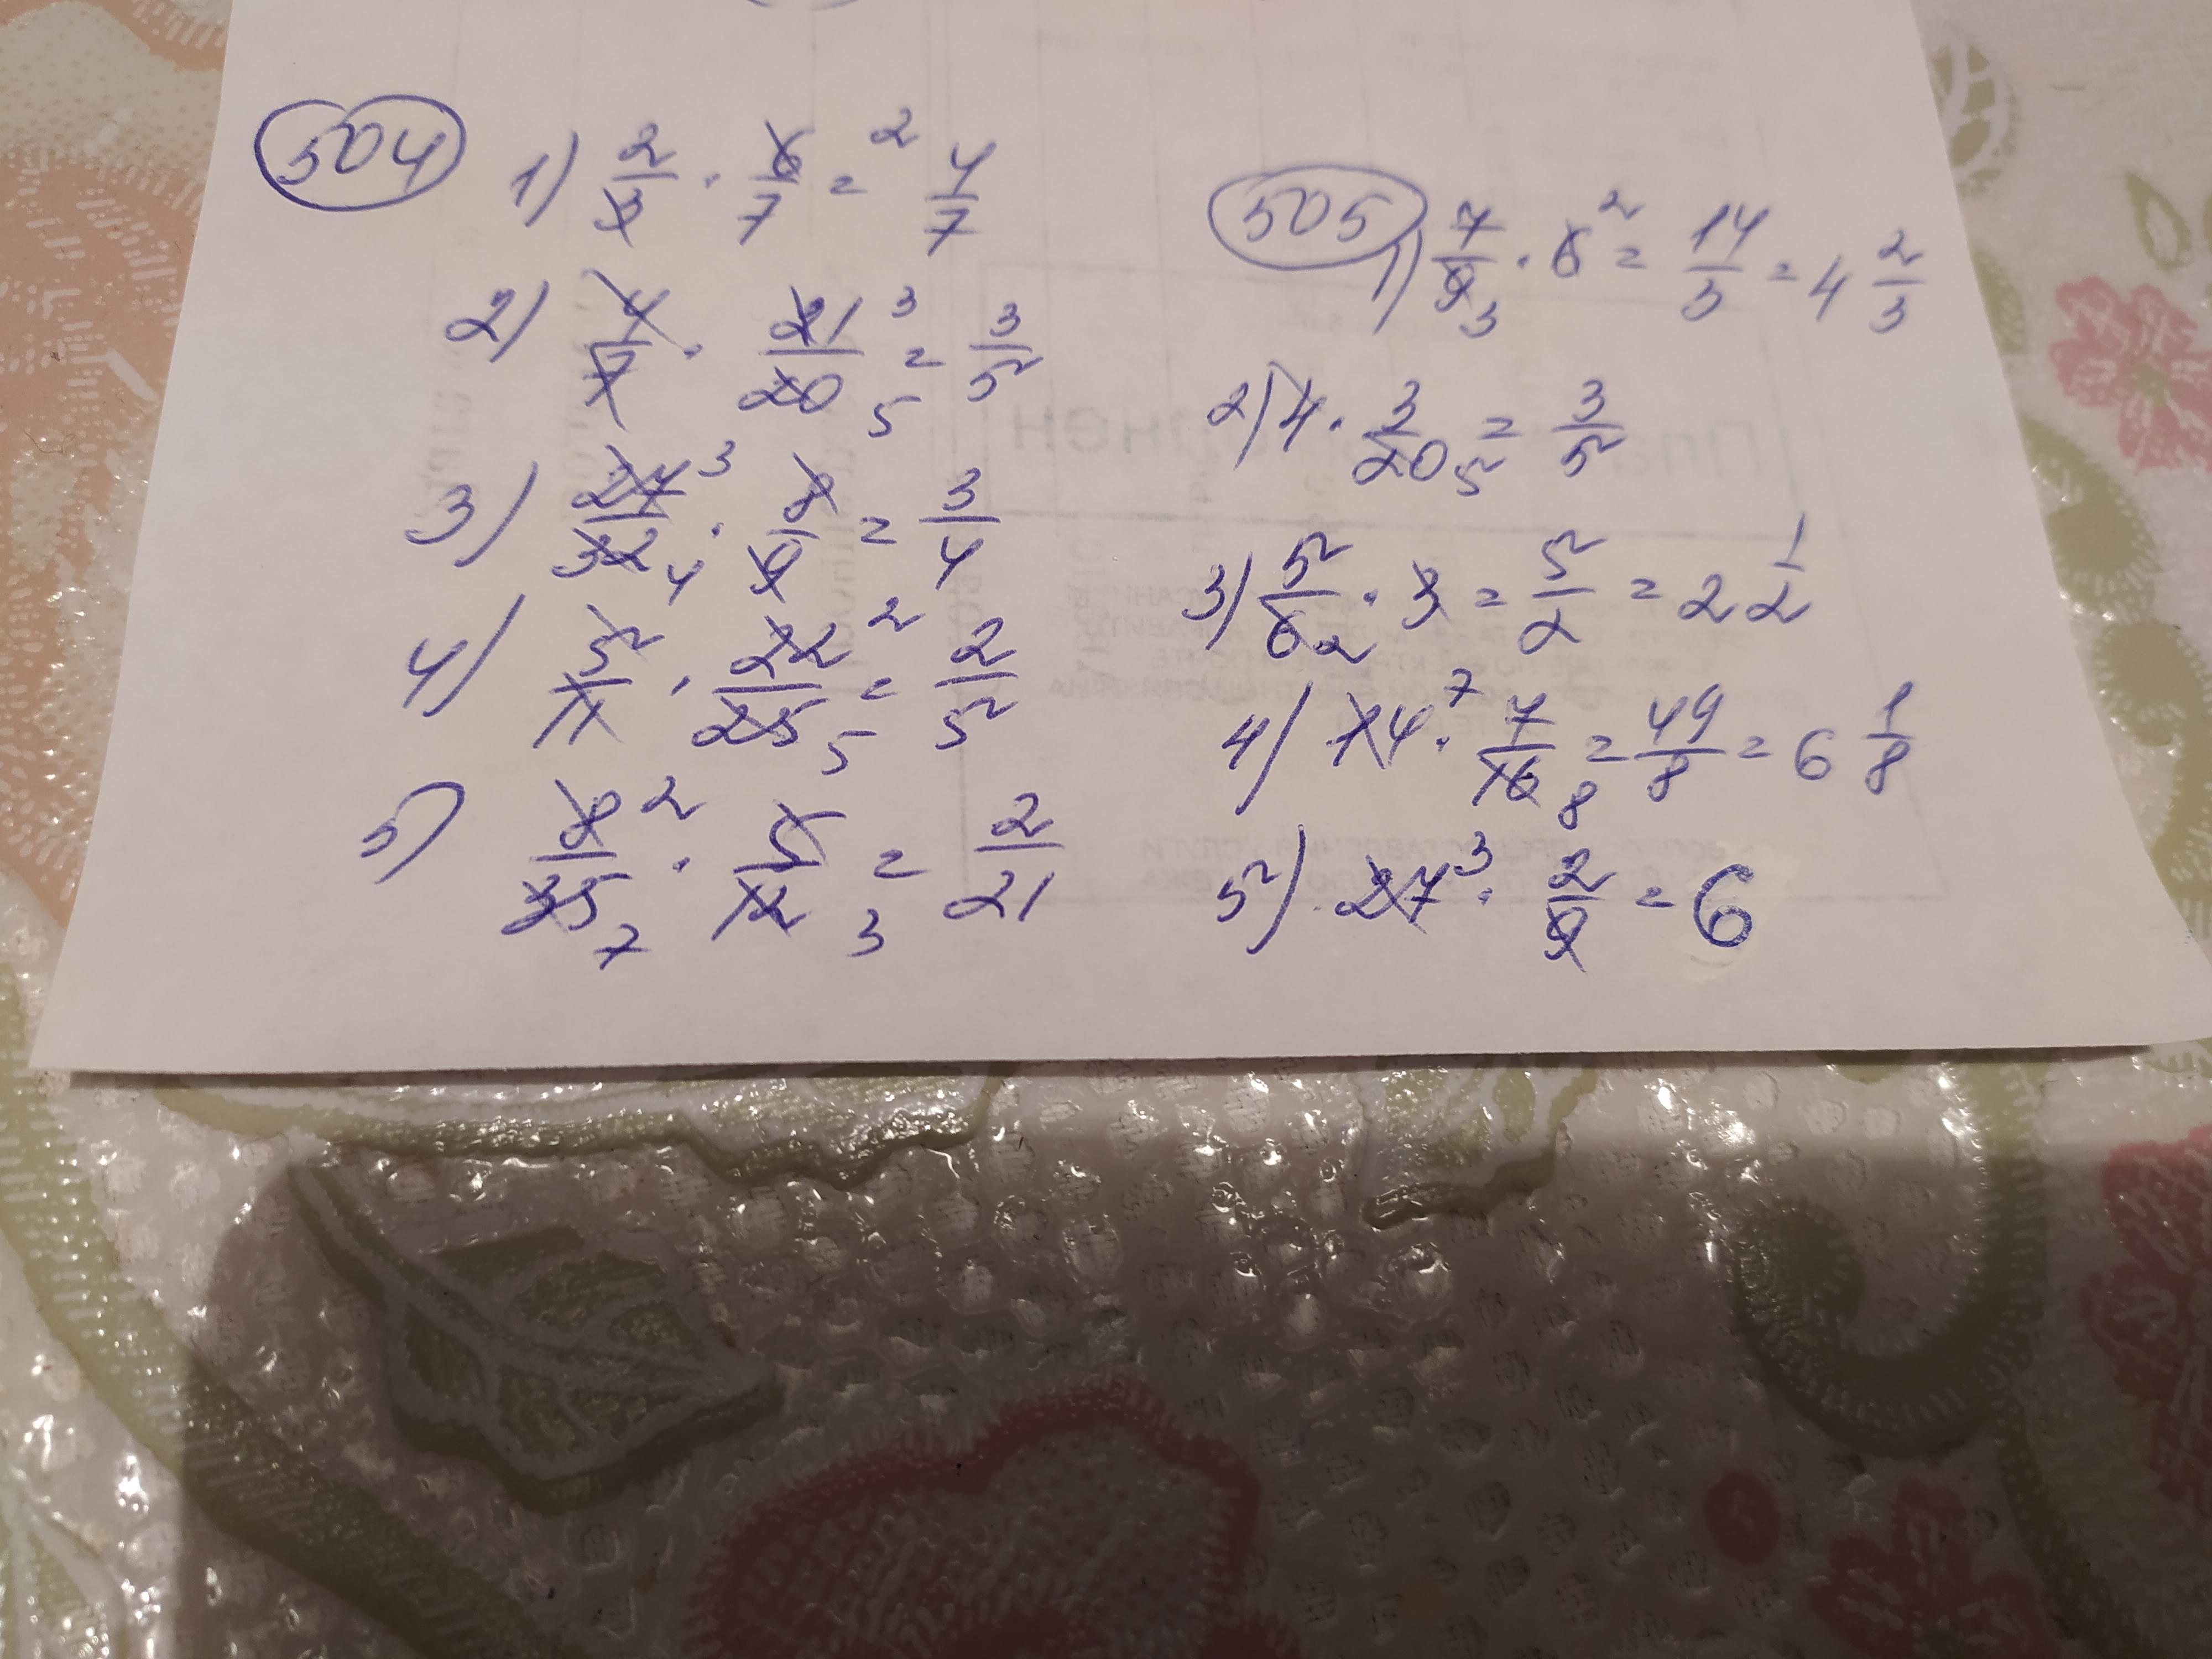 504
1) 2/3 · 6/7 = 2 4/7
2) 4/7 · 21/20 3 5 = 3/5
3) 27/32 3 4 · 8/9 = 3/4
4) 5/11 · 22/25 2 5 = 2/5
5) 8/35 2 7 · 5/12 3 = 2/21
505
1) 7/9 3 · 6 2 = 14/3 = 4 2/3
2) 4 · 3/20 5 = 3/5
3) 5/6 2 · 3 = 5/2 = 2 1/2
4) 14 7 · 7/16 8 = 49/8 = 6 1/8
5) 27 3 · 2/9 = 6